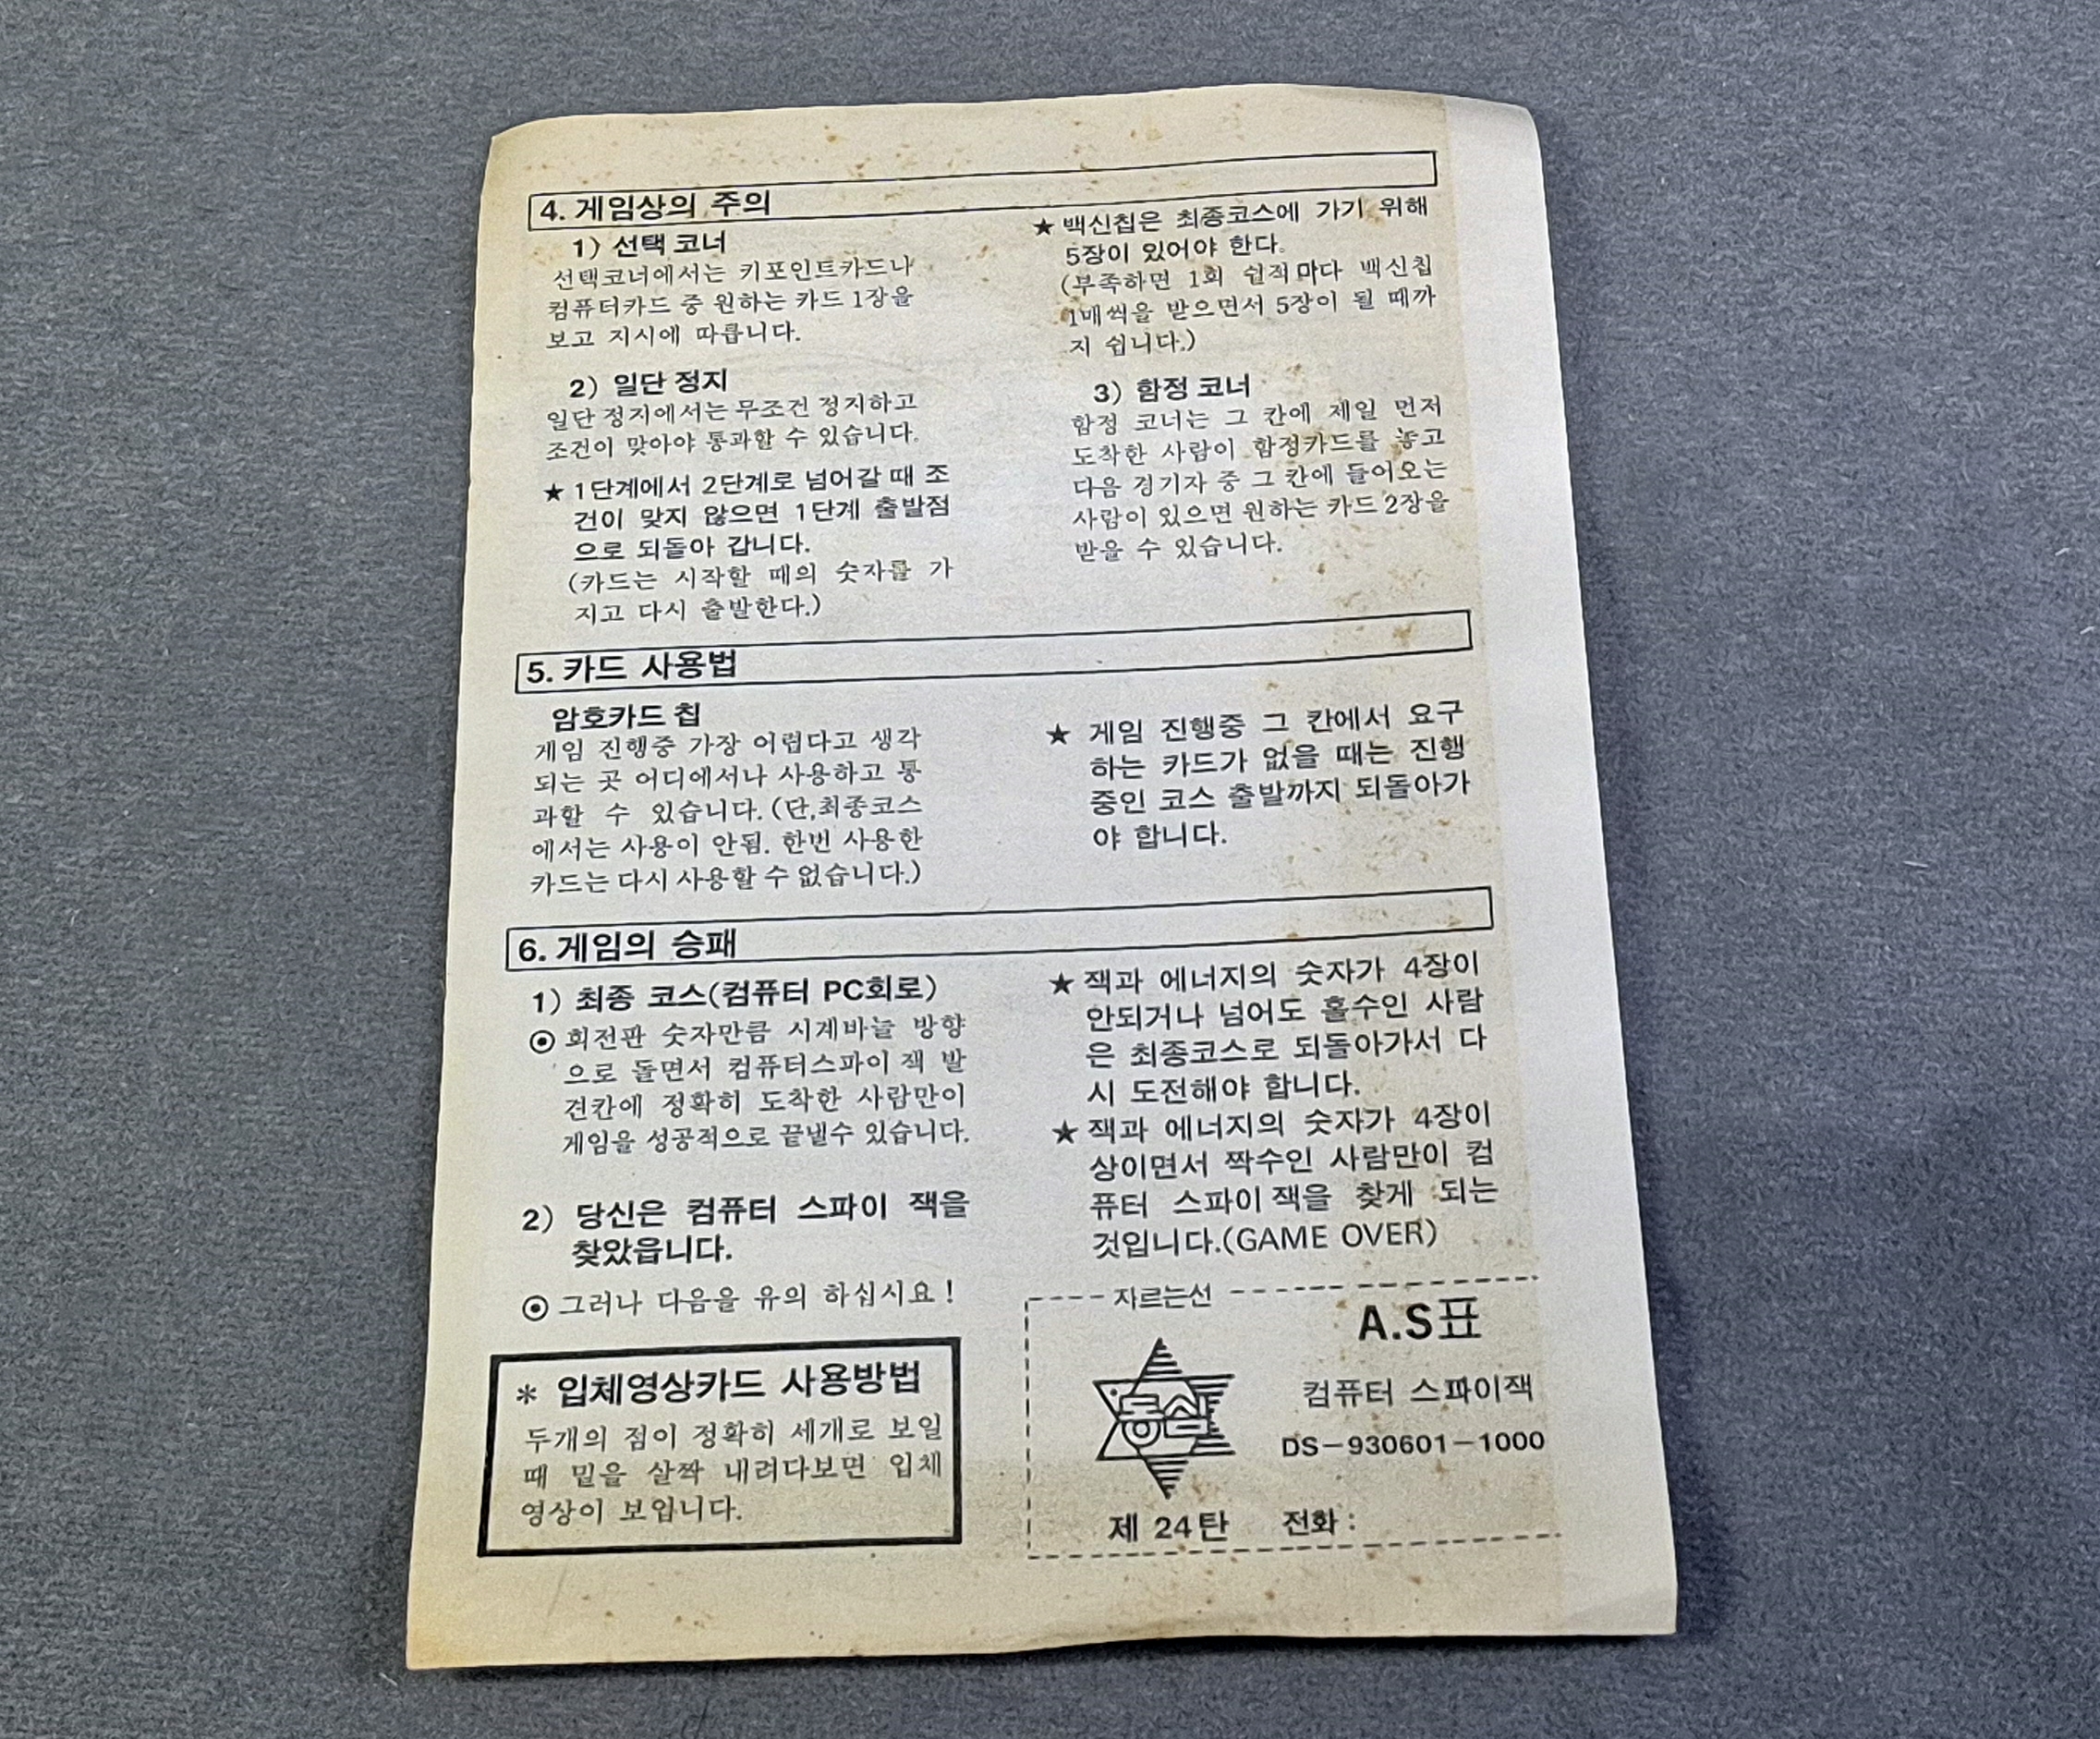 4. 게임상의 주의
1) 선택 코너
선택코너에서는 키포인트카드나
컴퓨터카드 중 원하는 카드 1장을
보고 지시에 따릅니다.
2) 일단 정지
일단 정지에서는 무조건 정지하고
조건이 맞아야 통과할 수 있습니다.
★ 1단계에서 2단계로 넘어갈 때 조
건이 맞지 않으면 1단계 출발점
으로 되돌아 갑니다.
(카드는 시작할 때의 숫자를 가
지고 다시 출발한다.)
★ 백신칩은 최종코스에 가기 위해
5장이 있어야 한다.
(부족하면 1회 쉴적마다 백신칩
1매씩을 받으면서 5장이 될 때까
지 쉽니다.)
3) 함정 코너
함정 코너는 그 칸에 제일 먼저
도착한 사람이 함정카드를 놓고
다음 경기자 중 그 칸에 들어오는
사람이 있으면 원하는 카드 2장을
받을 수 있습니다.
5. 카드 사용법
암호카드 칩
게임 진행중 가장 어렵다고 생각
되는 곳 어디에서나 사용하고 통
과할 수 있습니다. (단,최종코스
에서는 사용이 안됨. 한번 사용한
카드는 다시 사용할 수 없습니다.)
★ 게임 진행중 그 칸에서 요구
하는 카드가 없을 때는 진행
중인 코스 출발까지 되돌아가
야 합니다.
6. 게임의 승패
1) 최종 코스(컴퓨터 PC회로)
⊙ 회전판 숫자만큼 시계바늘 방향
으로 돌면서 컴퓨터스파이 잭 발
견칸에 정확히 도착한 사람만이
게임을 성공적으로 끝낼수 있습니다.
2) 당신은 컴퓨터 스파이 잭을
찾았읍니다.
⊙ 그러나 다음을 유의 하십시요!
★ 잭과 에너지의 숫자가 4장이
안되거나 넘어도 홀수인 사람
은 최종코스로 되돌아가서 다
시 도전해야 합니다.
★ 잭과 에너지의 숫자가 4장이
상이면서 짝수인 사람만이 컴
퓨터 스파이 잭을 찾게 되는
것입니다.(GAME OVER)
* 입체영상카드 사용방법
두개의 점이 정확히 세개로 보일
때 밑을 살짝 내려다보면 입체
영상이 보입니다.
자르는선
A.S표
컴퓨터 스파이잭
DS-930601-1000
제 24탄 전화 :